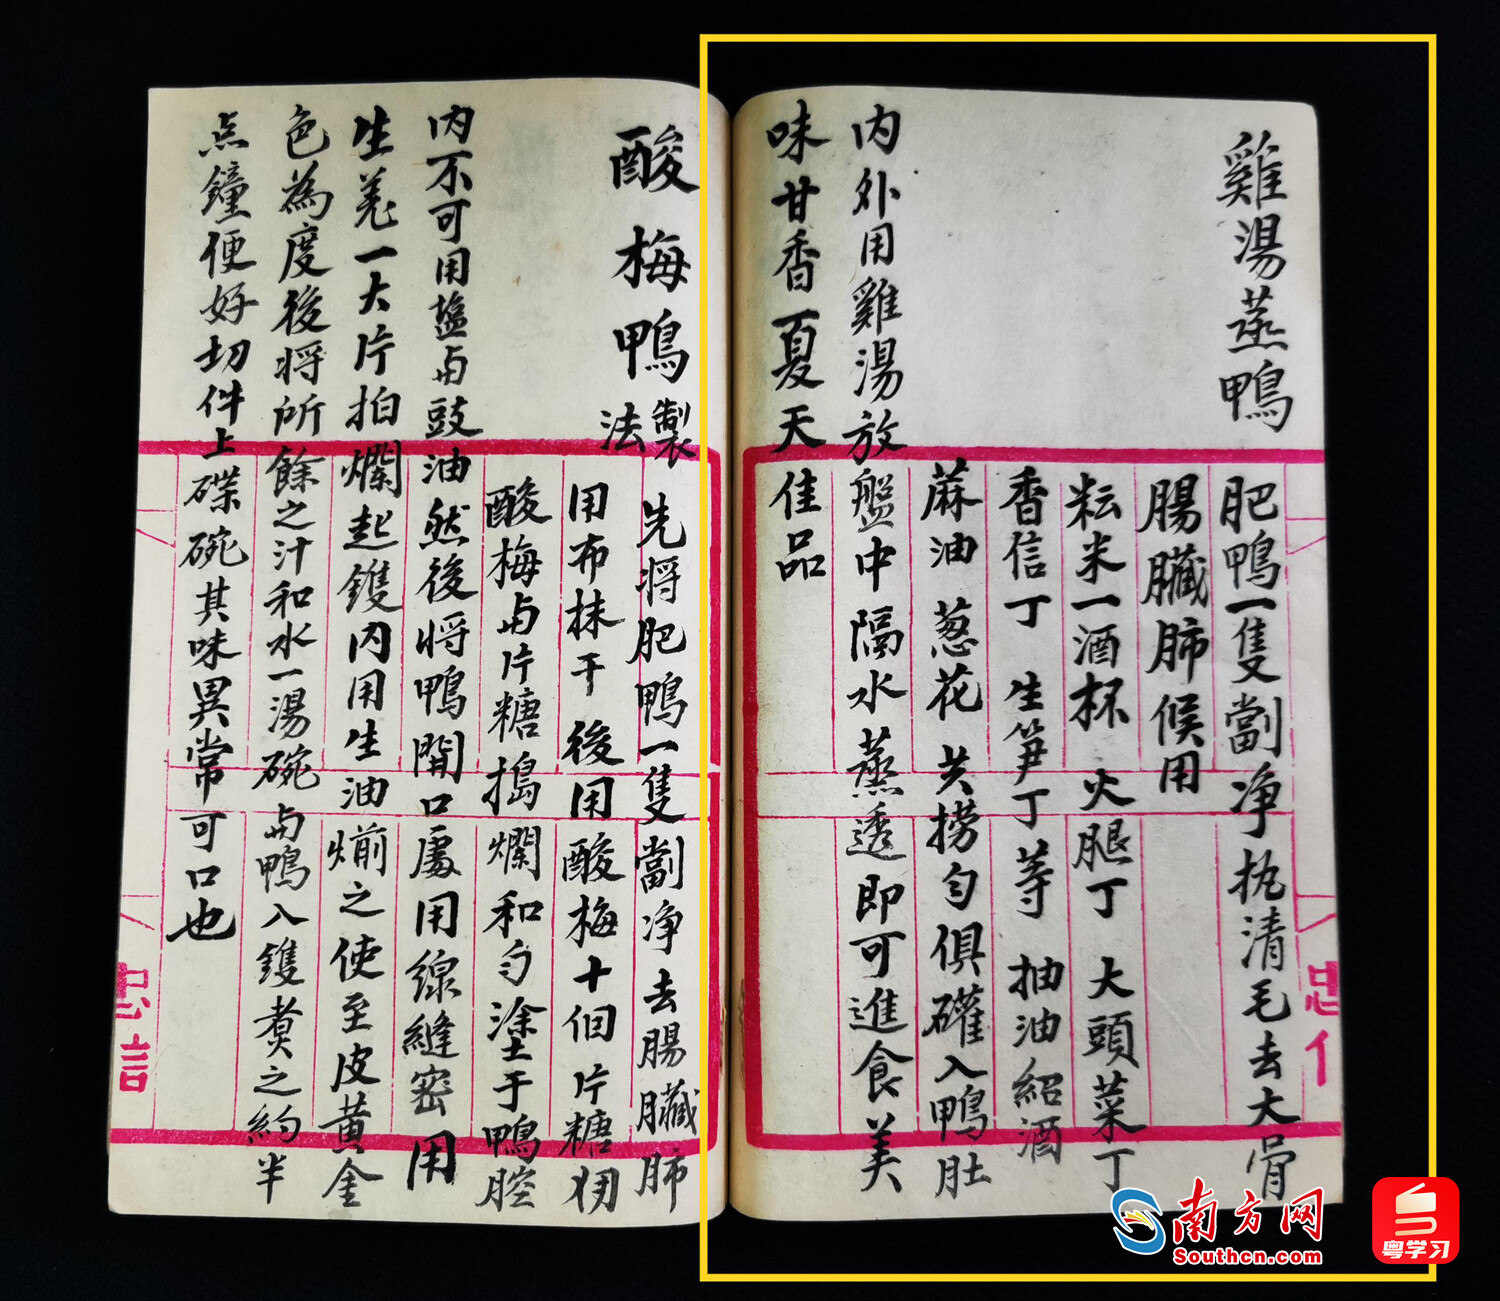 雞湯蒸鴨
肥鴨一隻劏净执清毛去大骨
腸臟肺候用
耘米一酒杯 火腿丁 大頭菜丁
香信丁 生笋丁等 抽油紹酒
蔴油 葱花 共捞匀俱礶入鴨肚
内外用雞湯放盤中隔水蒸透即可進食美
味甘香夏天佳品
酸梅鴨製法
先将肥鴨一隻劏净去腸臟肺
用布抹干後用酸梅十個片糖
酸梅与片糖搗爛和匀塗于鴨腔
内不可用盐与豉油然後将鴨開口處用線縫密用
生羗一大片拍爛起鑊内用生油煎之使至皮黄金
色為度後将所餘之汁和水一湯碗与鴨入鑊煮之約半
点鐘便好切件上碟碗其味異常可口也
忠信
忠信
南方网
Southcn.com
粤学习